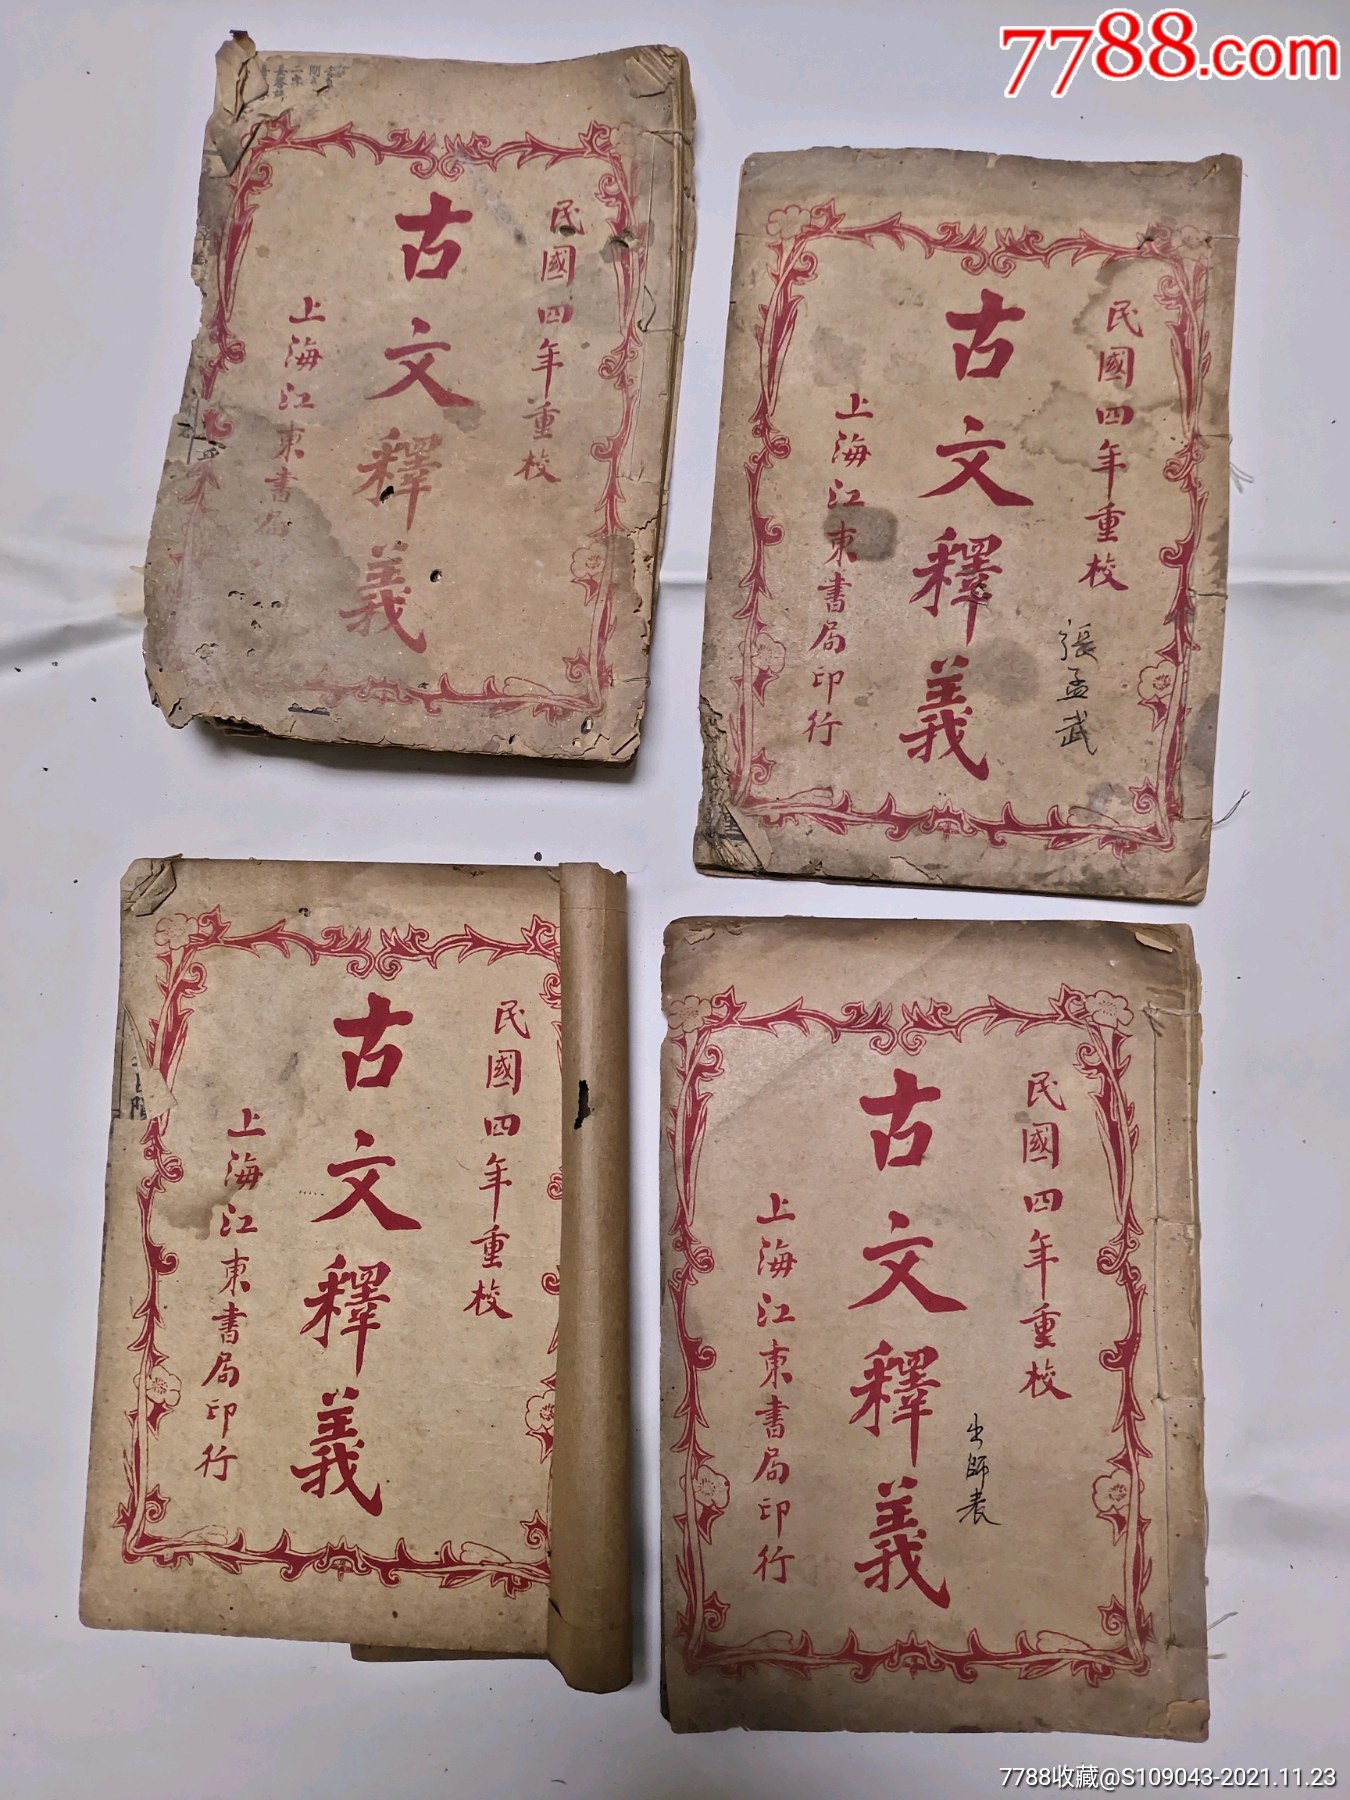 7788.com
民國四年重校
古文釋義
上海江東書局
民國四年重校
古文釋義
上海江東書局印行
張孟武
民國四年重校
古文釋義
上海江東書局印行
民國四年重校
古文釋義
上海江東書局印行
出師表
7788收藏@S109043-2021.11.23